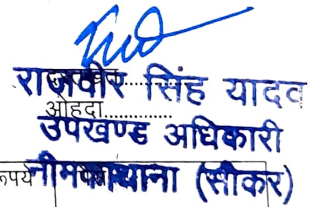 राजवीर सिंह यादव
ओहदा.............
उपखण्ड अधिकारी
रूपये
नीमकाथाना (सीकर)